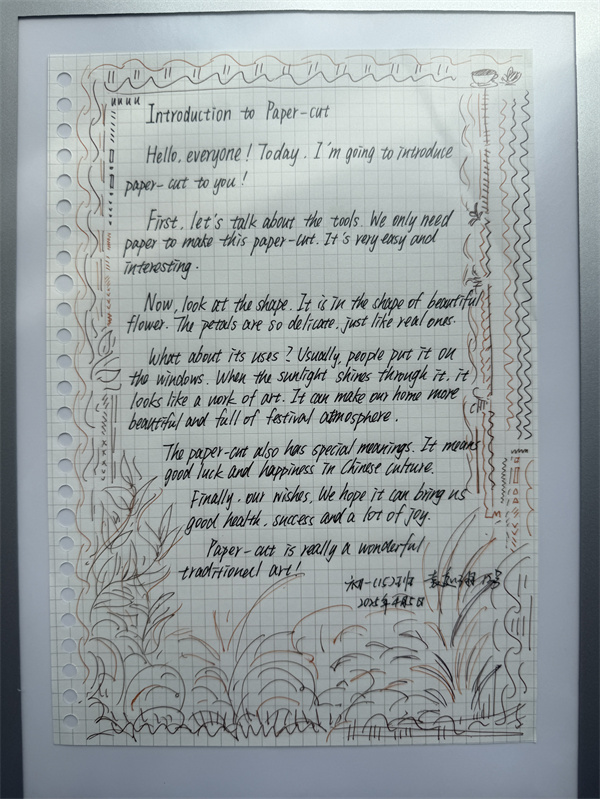 Introduction to Paper-cut
Hello, everyone! Today. I'm going to introduce
paper-cut to you!
First, let's talk about the tools. We only need
paper to make this paper-cut. It's very easy and
interesting.
Now, look at the shape. It is in the shape of beautiful
flower. The petals are so delicate, just like real ones.
What about its uses? Usually, people put it on
the windows. When the sunlight shines through it, it
looks like a work of art. It can make our home more
beautiful and full of festival atmosphere.
The paper-cut also has special meanings. It means
good luck and happiness in Chinese culture.
Finally, our wishes. We hope it can bring us
good health, success and a lot of joy.
Paper-cut is really a wonderful
traditional art!
初一(15)班
2025年 月5日